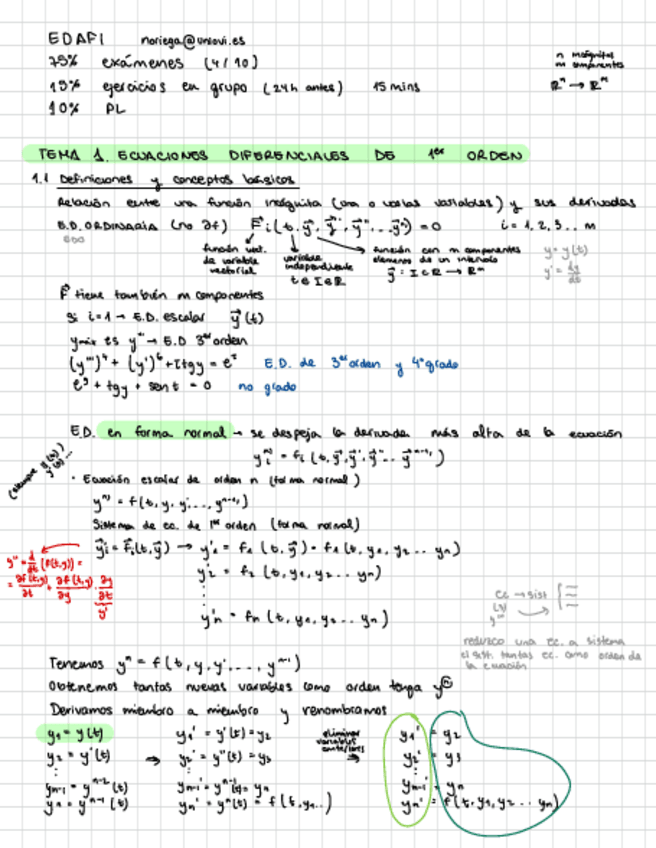 EDAFI noriega@uniovi.es
75% exámenes (4/10)
15% ejercicios en grupo (24h antes) 15 mins
10% PL
n incógnitas
m componentes
ℝⁿ → ℝᵐ
TEMA 1. ECUACIONES DIFERENCIALES DE 1er ORDEN
1.1 Definiciones y conceptos básicos
Relación entre una función incógnita (una o varias variables) y sus derivadas
E.D. ORDINARIA (no ∂f) F⃗i(t, y⃗, y⃗', y⃗''... y⃗ⁿ) = 0 i = 1, 2, 3... m
EDO
función vect. de variable vectorial
variable independiente t ∈ I ∈ ℝ
función con m componentes elementos de un intervalo y⃗: I ∈ ℝ → ℝᵐ
y = y(t)
y' = dy/dt
F⃗ tiene también m componentes
Si i=1 → E.D. escalar y⃗(t)
ymáx es y''' → E.D 3er orden
(y''')⁴ + (y')⁶ + tgy = eᵗ E.D. de 3er orden y 4º grado
+ tgy + sen t = 0 no grado
E.D. en forma normal → se despeja la derivada más alta de la ecuación
yᵢⁿ⁾ = fᵢ (t, y⃗, y⃗', y⃗''... y⃗ⁿ⁻¹⁾)
(siempre y(t)
· Ecuación escalar de orden n (forma normal)
yⁿ⁾ = f(t, y, y', ..., yⁿ⁻¹⁾)
Sistema de ec. de 1er orden (forma normal)
y⃗'i = F⃗i(t, y⃗) → y'₁ = f₁ (t, y⃗) = f₁ (t, y₁, y₂... yn)
y'₂ = f₂ (t, y₁, y₂... yn)
⋮
y'n = fn (t, y₁, y₂... yn)
y'' = d/dt (f(t,y)) =
= ∂f(t,y)/∂t + ∂f(t,y)/∂y · ∂y/∂t
y'
ec → sist
reduzco una ec. a sistema
el sist. tantas ec. como orden de
la ecuación
Tenemos yⁿ = f(t, y, y', ..., yⁿ⁻¹)
Obtenemos tantas nuevas variables como orden tenga yⁿ
Derivamos miembro a miembro y renombramos
y₁ = y(t) y₁' = y'(t) = y₂ eliminar variables anteriores y₁' = y₂
y₂ = y'(t) → y₂' = y''(t) = y₃ → y₂' = y₃
⋮
yn-1 = yⁿ⁻²(t) yn-1' = yⁿ⁻¹(t) = yn yn-1' = yn
yn = yⁿ⁻¹(t) yn' = yⁿ(t) = f(t, y₁...) yn' = f(t, y₁, y₂... yn)